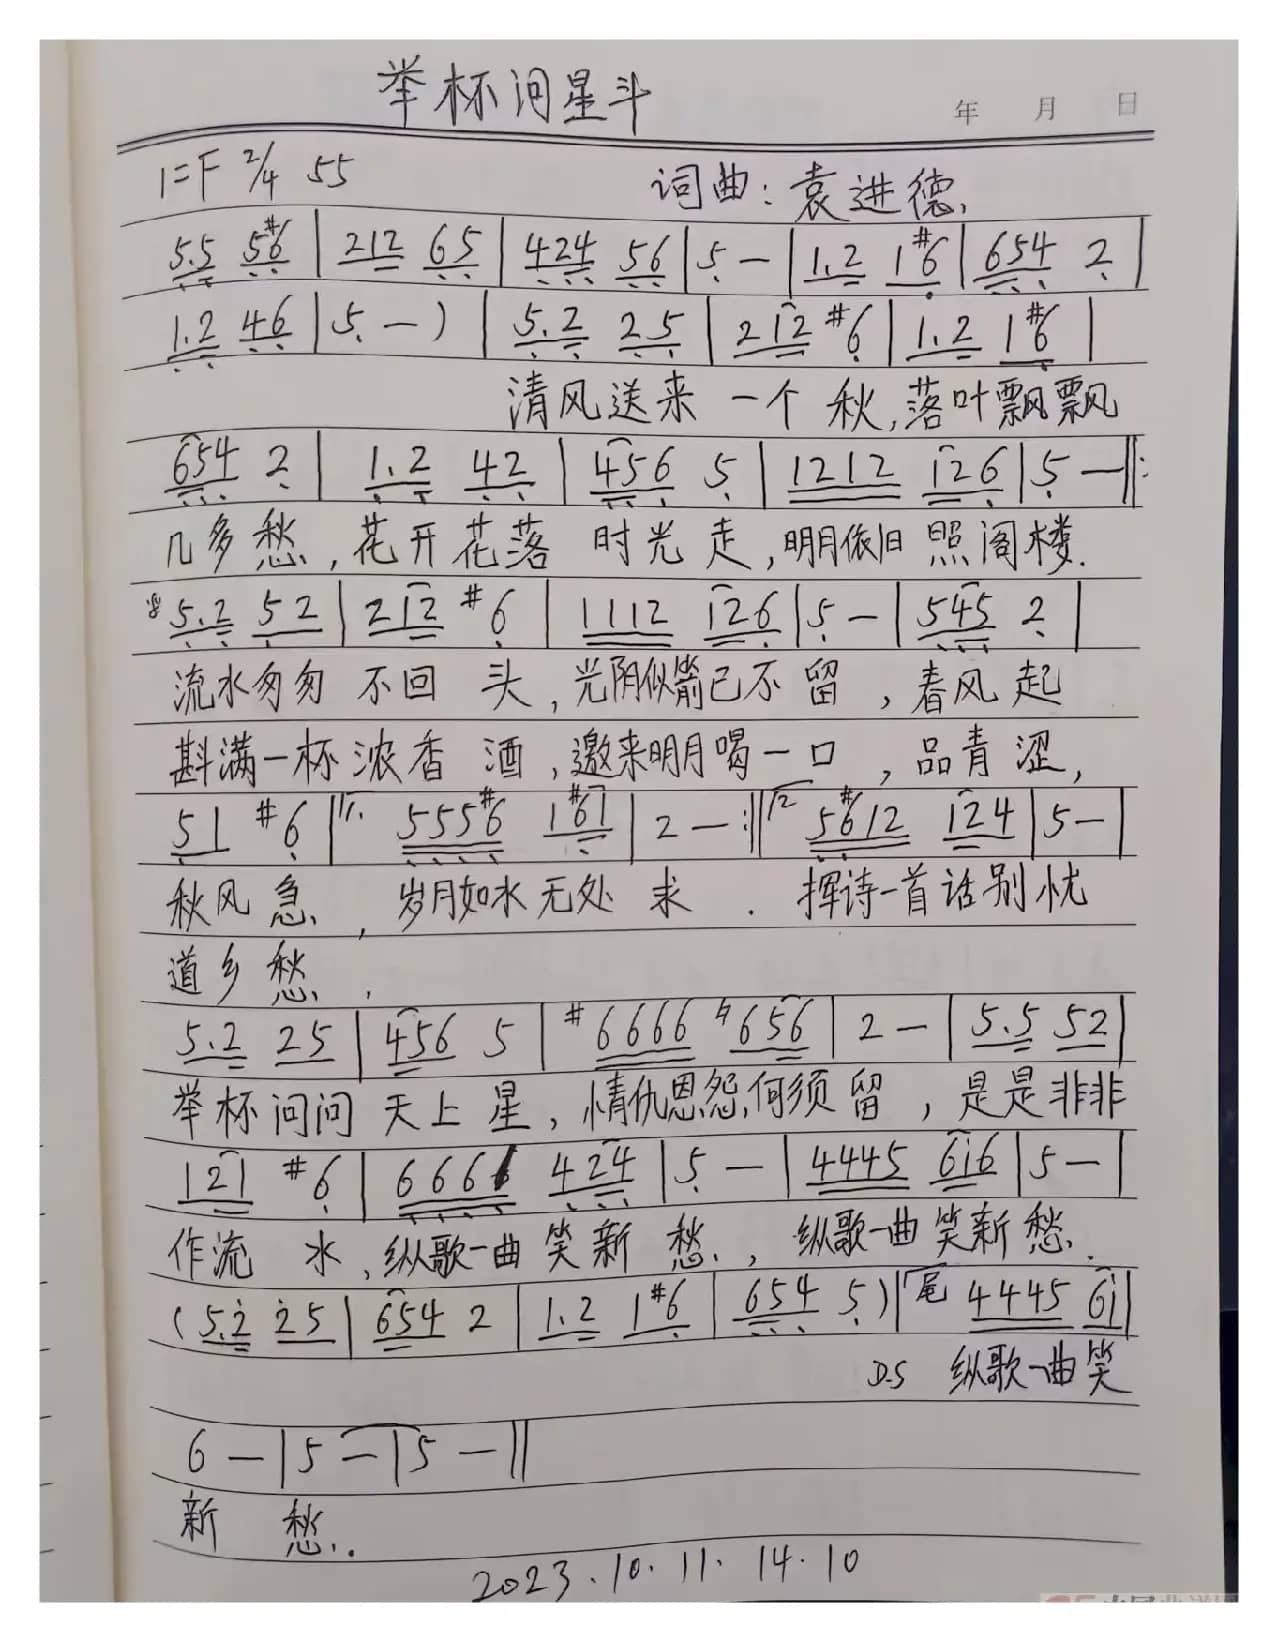 举杯问星斗
年 月 日
1=F 2/4 55
词曲：袁进德
5.5 5#6 | 212 65 | 424 56 | 5 — | 1.2 1#6 | 654 2 |
1.2 46 | 5 —) | 5.2 25 | 212 #6 | 1.2 1#6 |
清风送来 一个 秋,落叶飘飘
654 2 | 1.2 42 | 456 5 | 1212 126 | 5 — ‖:
几多愁,花开花落 时光走,明月依旧 照阁楼.
5.2 52 | 212 #6 | 1112 126 | 5 — | 545 2 |
流水匆匆 不回 头,光阴似箭已不留,春风起
斟满一杯浓香 酒,邀来明月喝一口,品青涩,
51 #6 ‖1. 555#6 1#61 | 2 — :‖2 5#612 124 | 5 — |
秋风急,岁月如水无处 求. 挥诗一首话别忧
道乡愁,
5.2 25 | 456 5 | #6666 656 | 2 — | 5.5 52 |
举杯问问 天上星,情仇恩怨何须留,是是非非
121 #6 | 666 424 | 5 — | 4445 616 | 5 — |
作流 水,纵歌一曲笑新 愁,纵歌一曲笑新愁.
(5.2 25 | 654 2 | 1.2 1#6 | 654 5) | 尾 4445 61 |
D.S 纵歌一曲笑
6 — | 5 — | 5 — ‖
新 愁..
2023.10.11.14.10